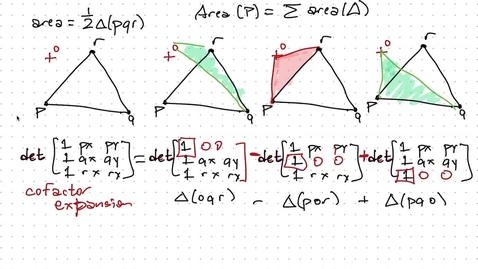 area = 1/2 Δ(pqr)
Area (P) = ∑ area(Δ)
o r P q
o r q
o r P q
o r P q
det [1 px py; 1 qx qy; 1 rx ry] = det [1 0 0; 1 qx qy; 1 rx ry] - det [1 px py; 1 0 0; 1 rx ry] + det [1 px py; 1 qx qy; 1 0 0]
cofactor
expansion
Δ(oqr) - Δ(por) + Δ(pqo)